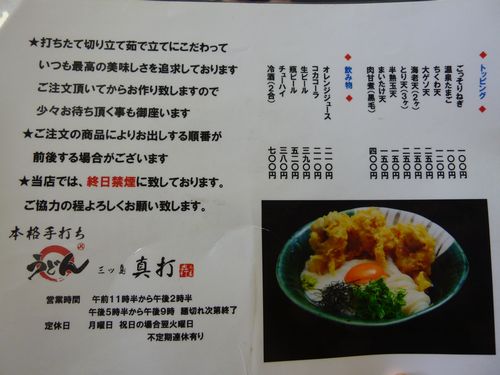 ★打ちたて切り立て茹で立てにこだわって
いつも最高の美味しさを追求しております
ご注文頂いてからお作り致しますので
少々お待ち頂く事も御座います
★ご注文の商品によりお出しする順番が
前後する場合がございます
★当店では、終日禁煙に致しております。
ご協力の程よろしくお願い致します。
本格手打ち
うどん 三ツ島 真打
営業時間 午前11時半から午後2時半
午後5時半から午後9時 麺切れ次第終了
定休日 月曜日 祝日の場合翌火曜日
不定期連休有り
◆トッピング◆
ごっそりねぎ 一〇〇円
温泉たまご 一〇〇円
ちくわ天 一五〇円
大ゲソ天 二五〇円
海老天(2ヶ)
とり天(3ヶ)
半熟玉天
まいたけ天
肉甘煮(黒毛) 四〇〇円
◆飲み物◆
オレンジジュース 二一〇円
コカコーラ 二一〇円
生ビール 三九〇円
瓶ビール 五二〇円
チューハイ 三八〇円
冷酒(2合) 七〇〇円